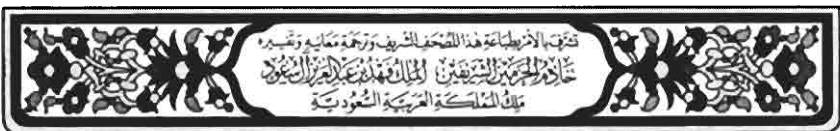 تشرف بالأمر بطباعة هذا المصحف الشريف وترجمة معانيه وتفسيره
خادم الحرمين الشريفين الملك فهد بن عبدالعزيز آل سعود
ملك المملكة العربية السعودية